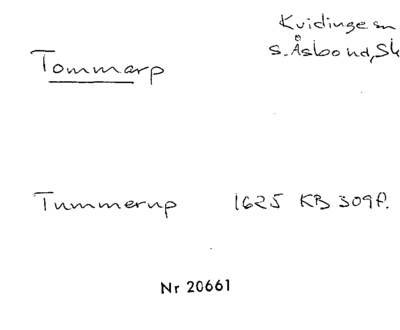 Kvidinge sn
Tommarp
S. Åsbo hd, Sk
Tummerup 1625 KB 309f.
Nr 20661